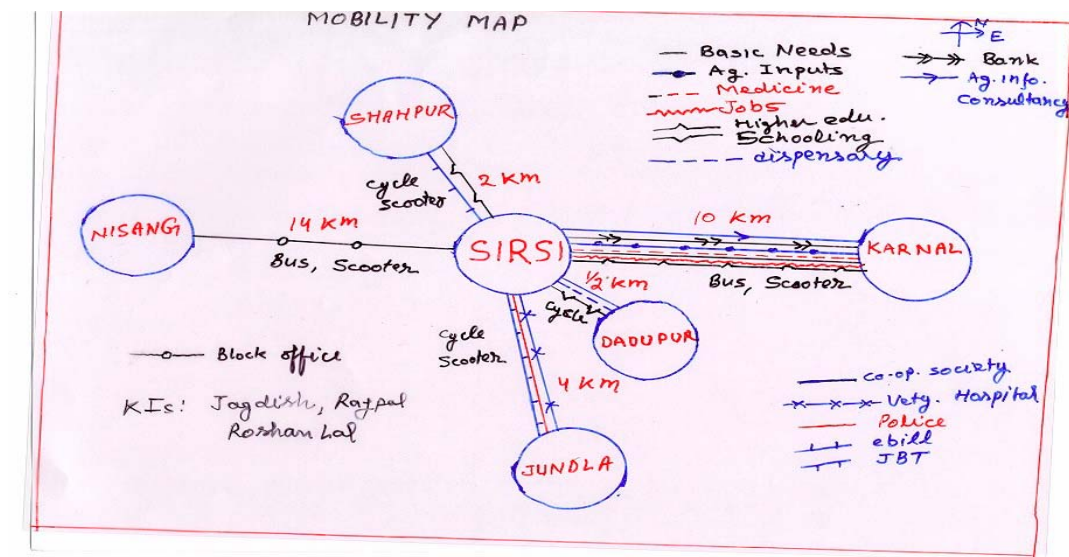 MOBILITY MAP
N
E
Basic Needs
Ag. Inputs
Medicine
Jobs
Higher edu.
Schooling
dispensary
Bank
Ag. info.
Consultancy
SHAHPUR
cycle
scooter
2 KM
NISANG
14 KM
Bus, Scooter
SIRSI
10 KM
KARNAL
Bus, Scooter
1/2 KM
cycle
DADUPUR
cycle
Scooter
4 KM
JUNDLA
Block office
KIs: Jagdish, Rajpal
Roshan Lal
Co-op. society
Vety. Hospital
Police
ebill
JBT